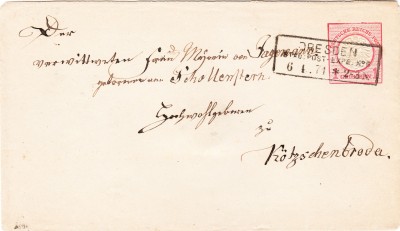 Der
verwittweten Frau Majorin von
geborene von Schallenstern
Hochwohlgeboren
zu
Kötzschenbroda.
DRESDEN
POST-EXP. No